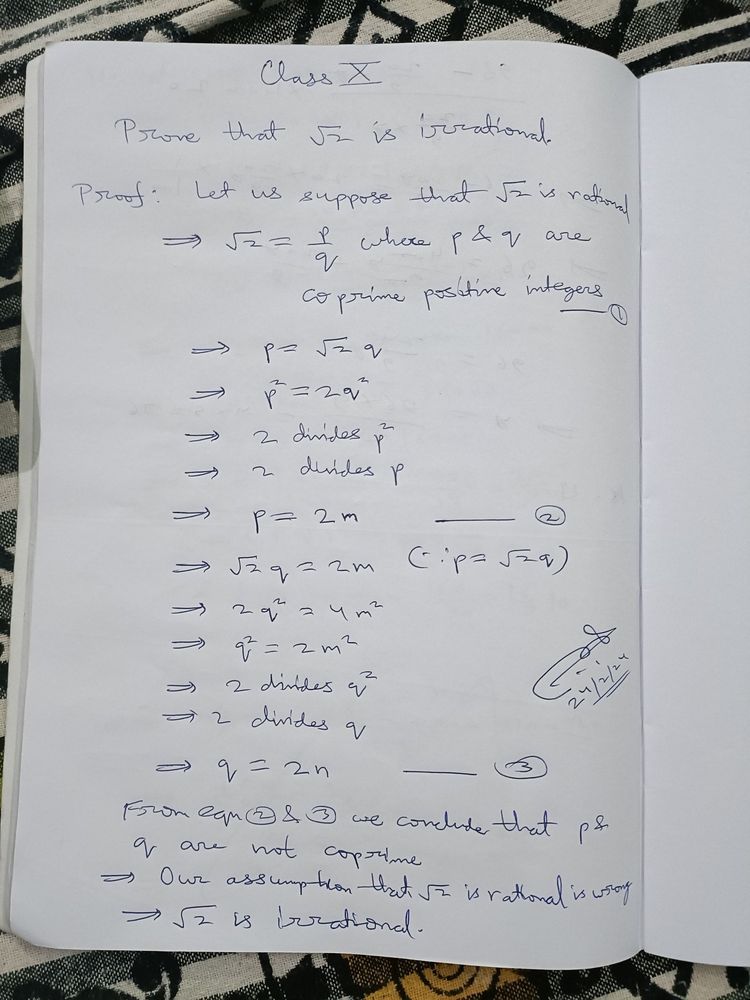 Class X
Prove that √2 is irrational.
Proof: Let us suppose that √2 is rational
⇒ √2 = p/q where p & q are
coprime positive integers
—— ①
⇒ p = √2 q
⇒ p² = 2q²
⇒ 2 divides p²
⇒ 2 divides p
⇒ p = 2m —— ②
⇒ √2 q = 2m (∵ p = √2q)
⇒ 2q² = 4m²
⇒ q² = 2m²
⇒ 2 divides q²
⇒ 2 divides q
⇒ q = 2n —— ③
From eqn ② & ③ we conclude that p &
q are not coprime
⇒ Our assumption that √2 is rational is wrong
⇒ √2 is irrational.